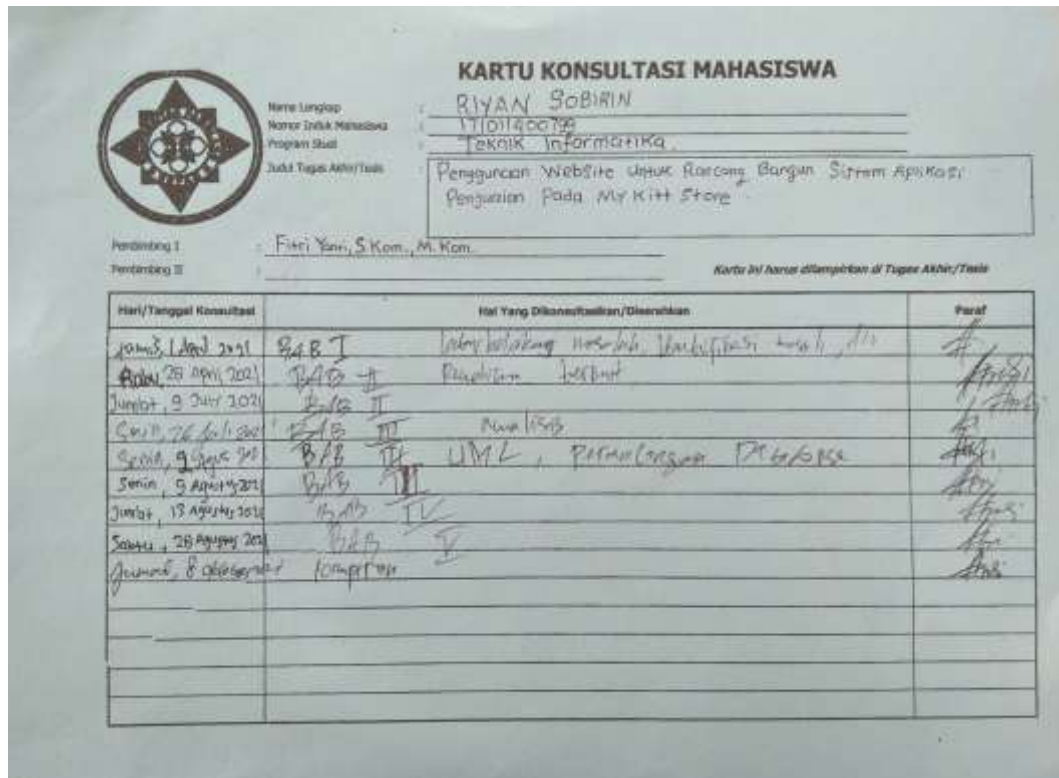 KARTU KONSULTASI MAHASISWA
Nama Lengkap : RIYAN SOBIRIN
Nomor Induk Mahasiswa : 171011400799
Program Studi : Teknik Informatika
Judul Tugas Akhir/Tesis : Penggunaan Website Untuk Rancang Bangun Sistem Aplikasi
Pada My Kitt Store
Pembimbing I : Fitri Yanti, S.Kom., M.Kom.
Pembimbing II :
Kartu ini harus dilampirkan di Tugas Akhir/Tesis
Hari/Tanggal Konsultasi Hal Yang Dikonsultasikan/Diserahkan Paraf
2021 BAB I Latar belakang masalah, dll
Rabu, 28 April 2021 BAB II
Jumat, 9 2021 BAB II
Senin, 26 Juli BAB III Analisis
Senin, 9 BAB III UML, Database
Senin, 9 Agustus 2021 BAB III
Jumat, 13 Agustus 2021 BAB IV
Sabtu, 28 Agustus 2021 BAB V
8